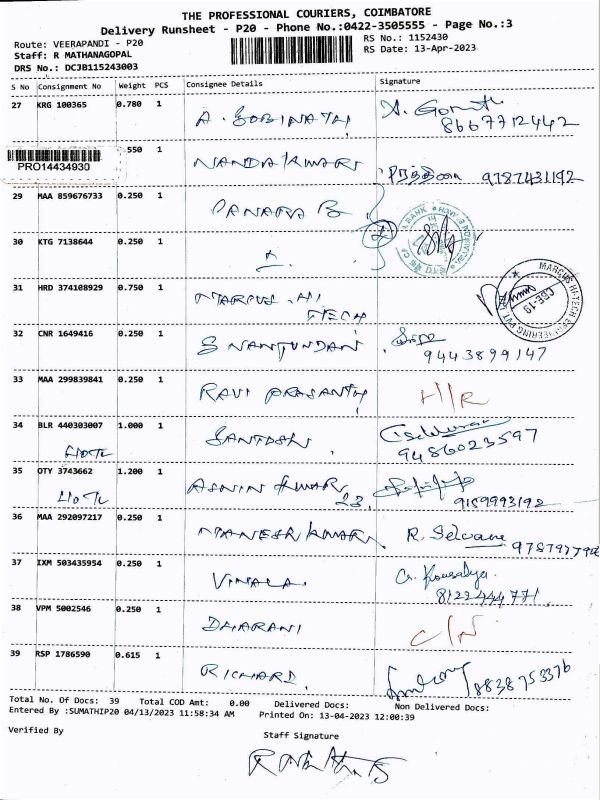 THE PROFESSIONAL COURIERS, COIMBATORE
Delivery Runsheet - P20 - Phone No.:0422-3505555 - Page No.:3
Route: VEERAPANDI - P20
RS No.: 1152430
Staff: R MATHANAGOPAL
RS Date: 13-Apr-2023
DRS No.: DCJB115243003
S No Consignment No Weight PCS Consignee Details Signature
27 KRG 100365 0.780 1 A. GOBINATH
8667712442
PRO14434930 .550 1 NANDA KUMAR 9787431192
29 MAA 859676733 0.250 1 CANARA B
30 KTG 7138644 0.250 1
31 HRD 374108929 0.750 1 MARCUS HI TECH
MARCUS HI-TECH ENGINEERING PVT LTD
CBE-19
32 CNR 1649416 0.250 1 S NANJUNDAN
9443899147
33 MAA 299839841 0.250 1 RAVI PRASANTH H/R
34 BLR 440303007 1.000 1 SANTOSH
9486023597
35 OTY 3743662 1.200 1 ASWIN KUMAR
9159993192
36 MAA 292097217 0.250 1 MANESH KUMAR R. Selvam
37 IXM 503435954 0.250 1 VIMALA G. Kousalya
8122444771
38 VPM 5002546 0.250 1 DHARANI C/N
39 RSP 1786590 0.615 1 RICHARD
8838753376
Total No. Of Docs: 39 Total COD Amt: 0.00 Delivered Docs: Non Delivered Docs:
Entered By :SUMATHIP20 04/13/2023 11:58:34 AM Printed On: 13-04-2023 12:00:39
Verified By
Staff Signature